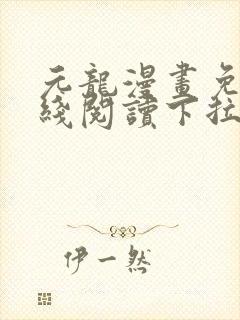 元龍漫畫免
綫閱讀下拉
伊一然